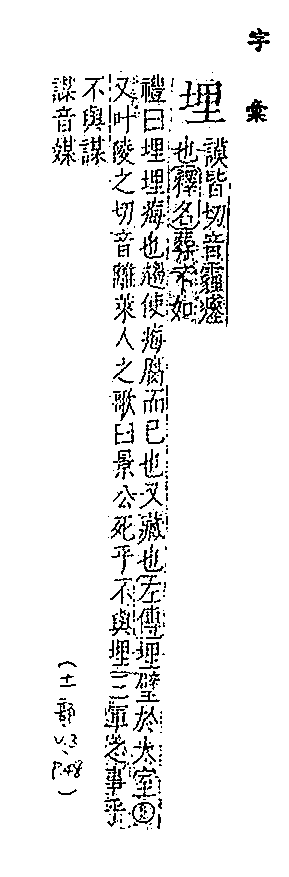 字彙
埋
謨皆切音霾瘞
也釋名葬不如
禮曰埋埋痗也趨使痗腐而已也又藏也左傳埋璧於太室⑧
又叶陵之切音離萊人之歌曰景公死乎不與埋三軍之事乎
不與謀
謀音媒
(土部
v.3,
p.48)